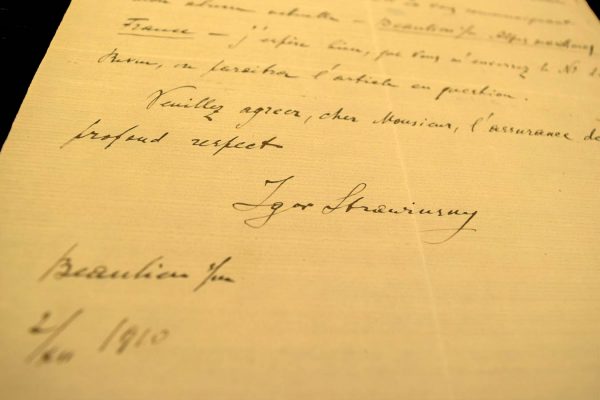 mon adresse actuelle – Beaulieu s/m. Alpes maritimes,
France – j'espère bien, que vous m'enverrez le No
où paraîtra l'article en question.
Veuillez agréer, cher Monsieur, l'assurance de
profond respect
Igor Strawinsky
Beaulieu s/m
2/XII 1910